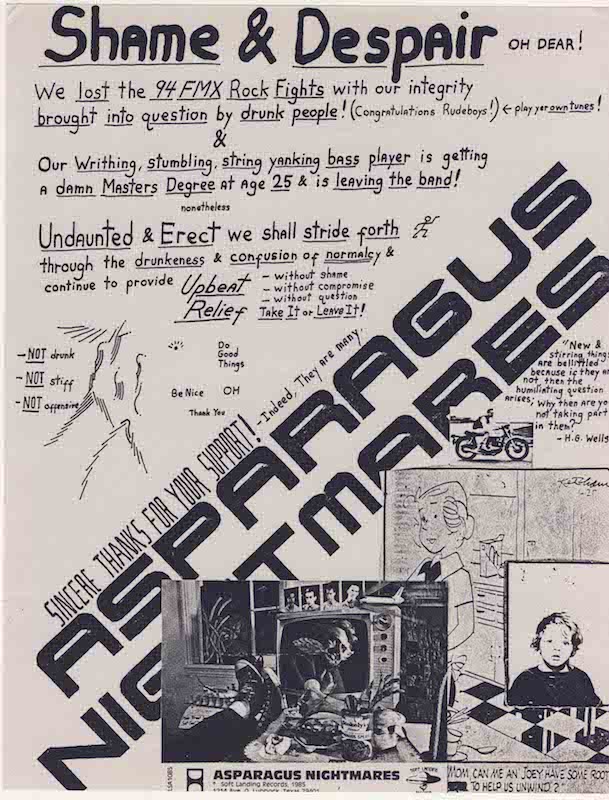 Shame & Despair OH DEAR!
We lost the 94 FMX Rock Fights with our integrity
brought into question by drunk people! (Congratulations Rudeboys!) ← play yer own tunes!
&
Our Writhing, stumbling, string yanking bass player is getting
a damn Masters Degree at Age 25 & is leaving the band!
nonetheless
Undaunted & Erect we shall stride forth
through the drunkeness & confusion of normalcy &
continue to provide Upbeat Relief
- without shame
- without compromise
- without question
Take It or Leave It!
- NOT drunk
- NOT stiff
- NOT offensive
Do
Good
Things
Be Nice OH
Thank You
- Indeed, They are many.
SINCERE THANKS FOR YOUR SUPPORT!
ASPARAGUS
NIGHTMARES
"New &
stirring things
are belittled
because if they are
not, then the
humiliating question
arises, 'Why then are you
not taking part
in them?'
- H.G. Wells
Ketcham
ASPARAGUS NIGHTMARES
Soft Landing Records, 1985
Lubbock, Texas 79401
MOM, CAN ME AN' JOEY HAVE SOME ROOT
TO HELP US UNWIND?"